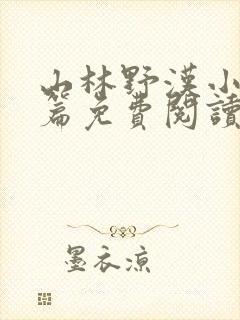 山林野漢小
篇免費閱讀
墨衣涼